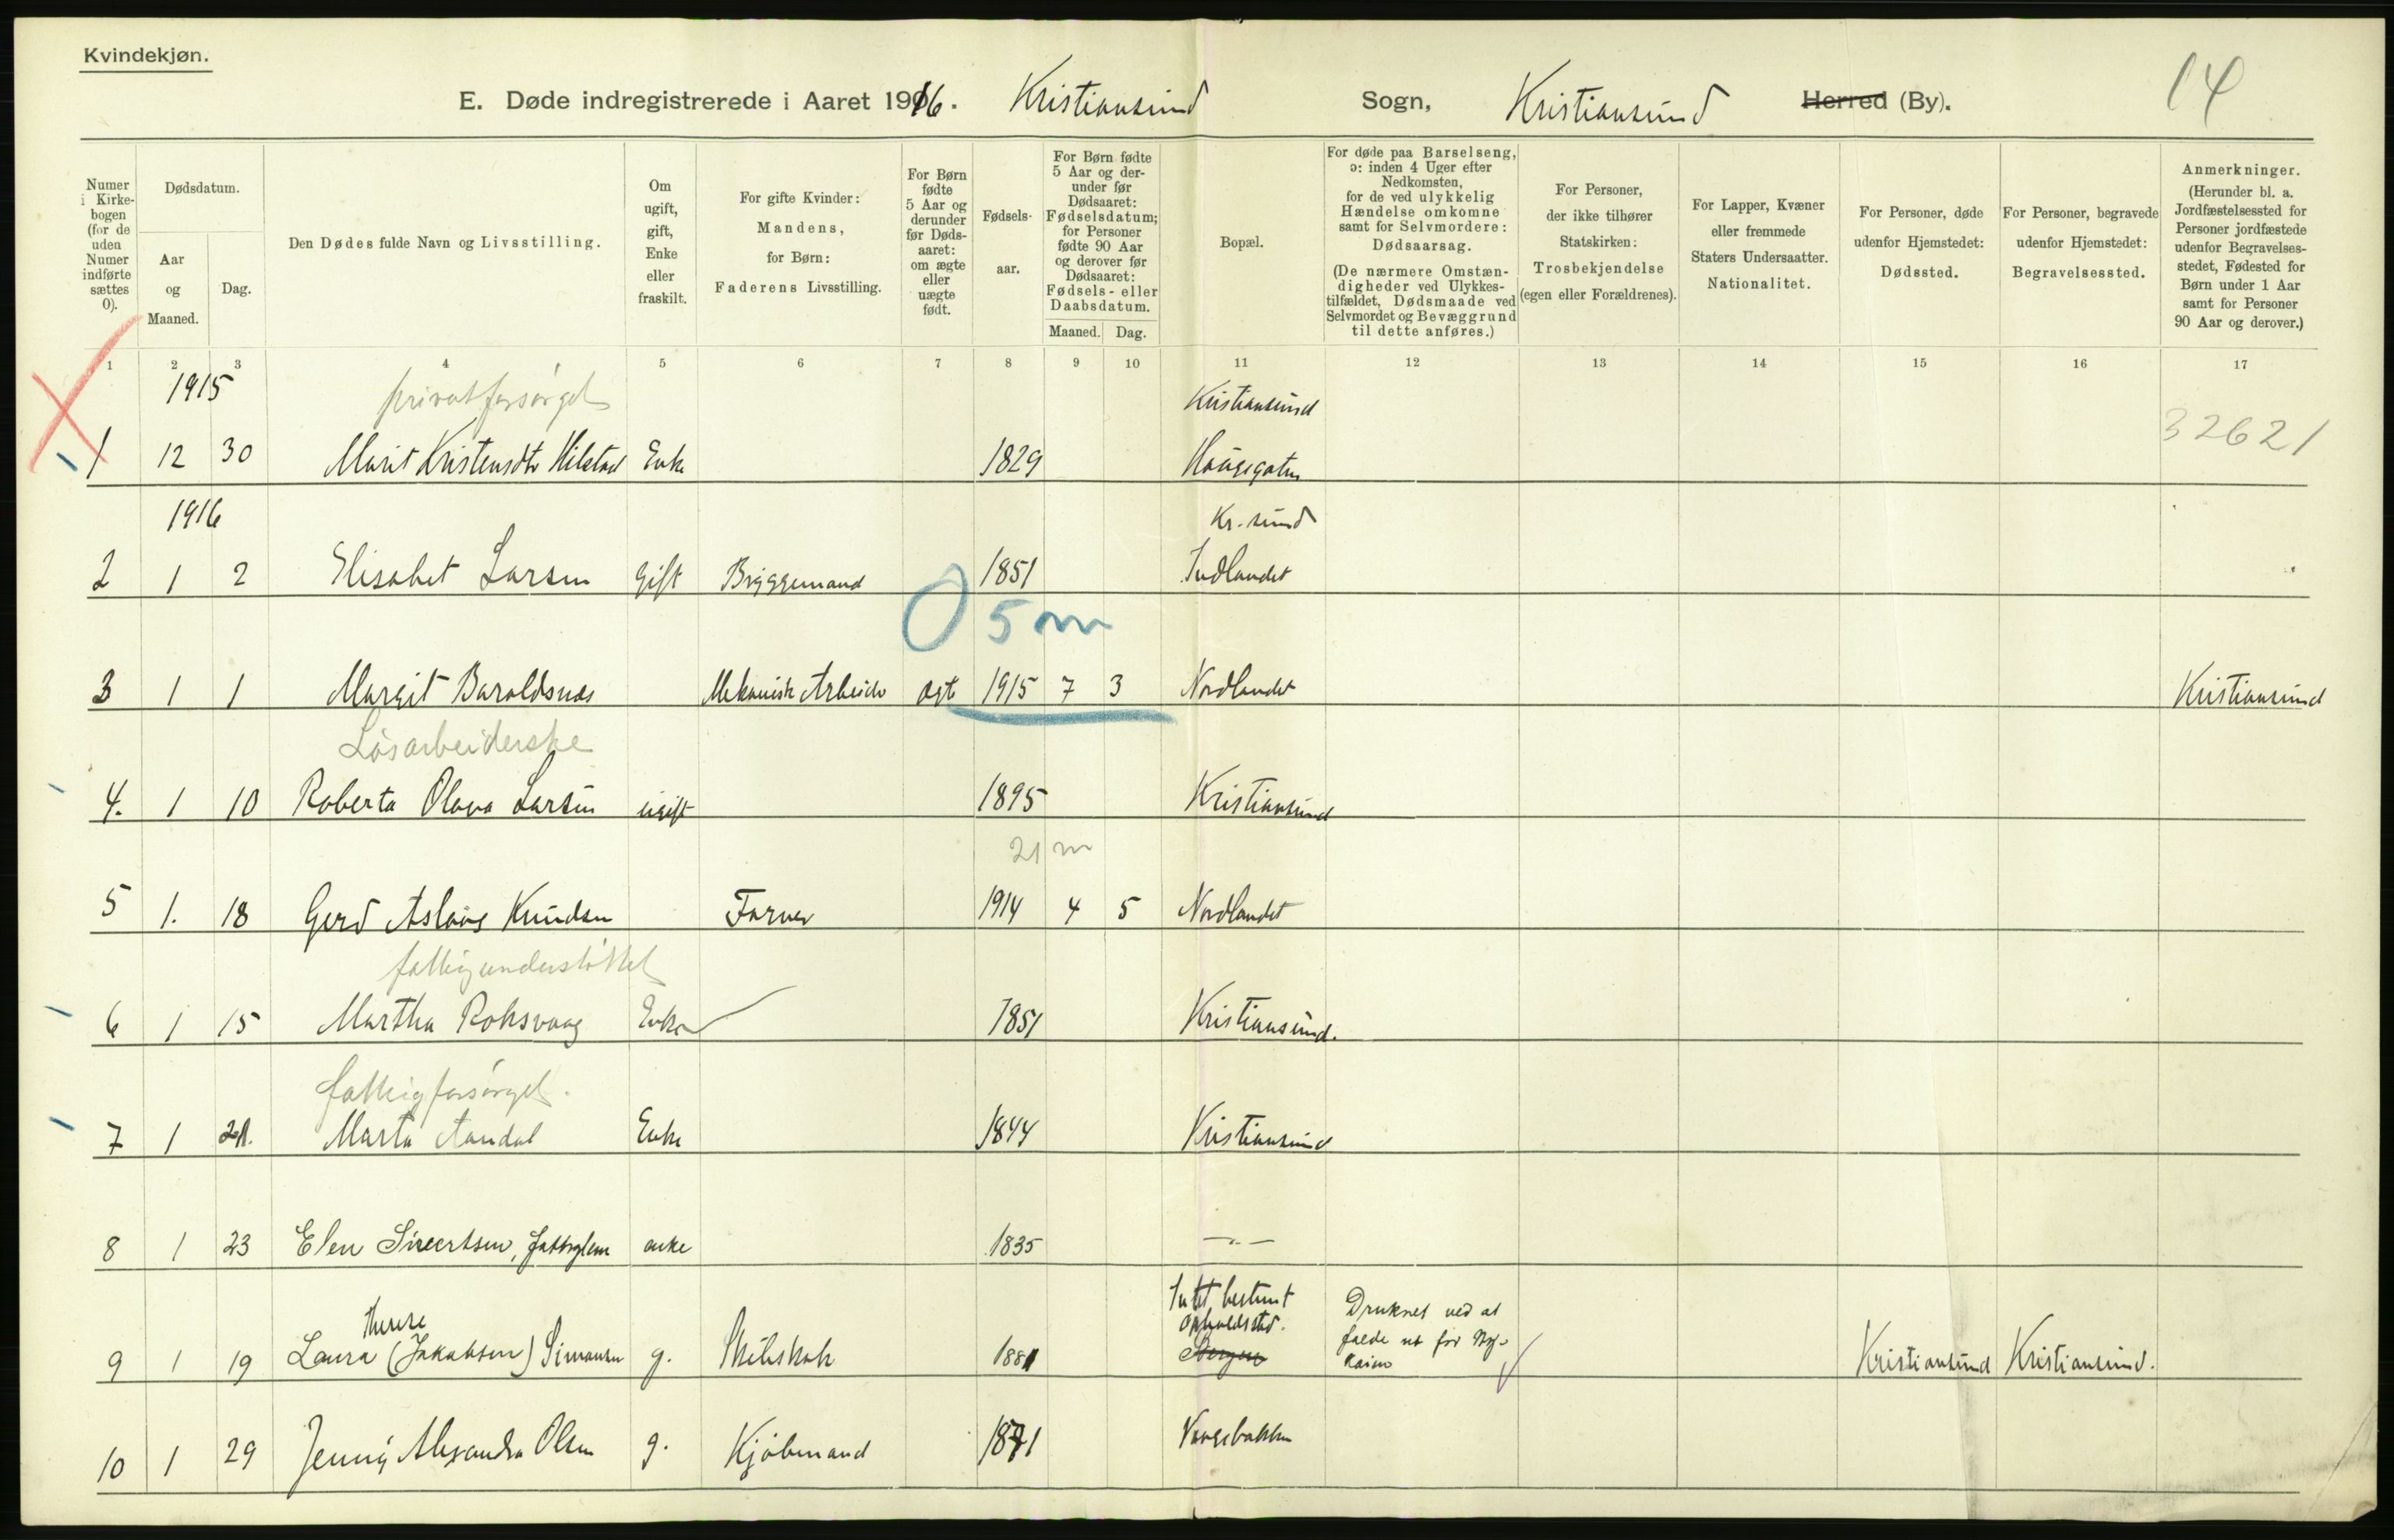 Kvindekjøn.
E. Døde indregistrerede i Aaret 1916. Kristiansund Sogn, Kristiansund Herred (By).
14
Numer i Kirke-bogen (for de uden Numer indførte sættes 0).
Dødsdatum.
Aar og Maaned.
Dag.
Den Dødes fulde Navn og Livsstilling.
Om ugift, gift, Enke eller fraskilt.
For gifte Kvinder: Mandens, for Børn: Faderens Livsstilling.
For Børn fødte 5 Aar og derunder før Døds-aaret: om ægte eller uægte født.
Fødsels-aar.
For Børn fødte 5 Aar og der-under før Dødsaaret: Fødselsdatum; for Personer fødte 90 Aar og derover før Dødsaaret: Fødsels- eller Daabsdatum.
Maaned. Dag.
Bopæl.
For døde paa Barselseng, ɔ: inden 4 Uger efter Nedkomsten, for de ved ulykkelig Hændelse omkomne samt for Selvmordere: Dødsaarsag.
(De nærmere Omstæn-digheder ved Ulykkes-tilfældet, Dødsmaade ved Selvmordet og Bevæggrund til dette anføres.)
For Personer, der ikke tilhører Statskirken: Trosbekjendelse (egen eller Forældrenes).
For Lapper, Kvæner eller fremmede Staters Undersaatter. Nationalitet.
For Personer, døde udenfor Hjemstedet: Dødssted.
For Personer, begravede udenfor Hjemstedet: Begravelsessted.
Anmerkninger.
(Herunder bl. a. Jordfæstelsessted for Personer jordfæstede udenfor Begravelses-stedet, Fødested for Børn under 1 Aar samt for Personer 90 Aar og derover.)
1 2 3 4 5 6 7 8 9 10 11 12 13 14 15 16 17
1915 privat forsørget Kristiansund
1 12 30 Marit Kristensdtr Hilstad Enke 1829 Haugegaten 32621
1916 Kr.sund
2 1 2 Elisabet Larsen Gift Bryggemand 1851 Indlandet
0 5 m
3 1 1 Margit Baraldsnes Mekanisk Arbeider ægte 1915 7 3 Nordlandet Kristiansund
Løsarbeiderske
4. 1 10 Roberta Olava Larsen ugift 1895 Kristiansund
21 m
5 1. 18 Gerd Aslaug Knudsen Farver 1914 4 5 Nordlandet
fattigunderstøttet
6 1 15 Martha Roksvaag Enke 1851 Kristiansund.
fattigforsørget.
7 1 21. Marta Aandal Enke 1844 Kristiansund
8 1 23 Elen Sivertsen, fattiglem enke 1835 —„—
Intet bestemt opholdssted.
Therese
9 1 19 Laura (Jakobsen) Simonsen g. Skibskok 1881 Bergen Druknet ved at falde ut for Bry- Kaien Kristiansund Kristiansund.
10 1 29 Jenny Alexandra Olsen g. Kjøbmand 1871 Vaagebakken